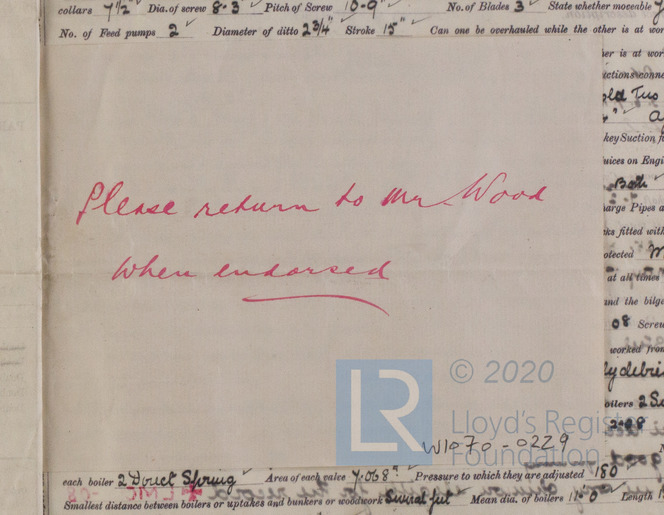 collars 7½" Dia. of screw 8-3 Pitch of Screw 10-9" No. of Blades 3 State whether moveable
No. of Feed pumps 2 Diameter of ditto 2¾" Stroke 15" Can one be overhauled while the other is at wor
her is at wor
uctions conne
old Tus
key Suction f
uices on Engi
Both
Please return to Mr Wood
arge Pipes a
ks fitted with
otected
when endorsed
at all times
and the bilg
08 Screw
worked from
© 2020
LR
oilers
Lloyd's Registe
Foundation
2-08
W1070-0229
each boiler 2 Direct Spring Area of each valve 7.068" Pressure to which they are adjusted 180
Smallest distance between boilers or uptakes and bunkers or woodwork Mean dia. of boilers 11-0 Length